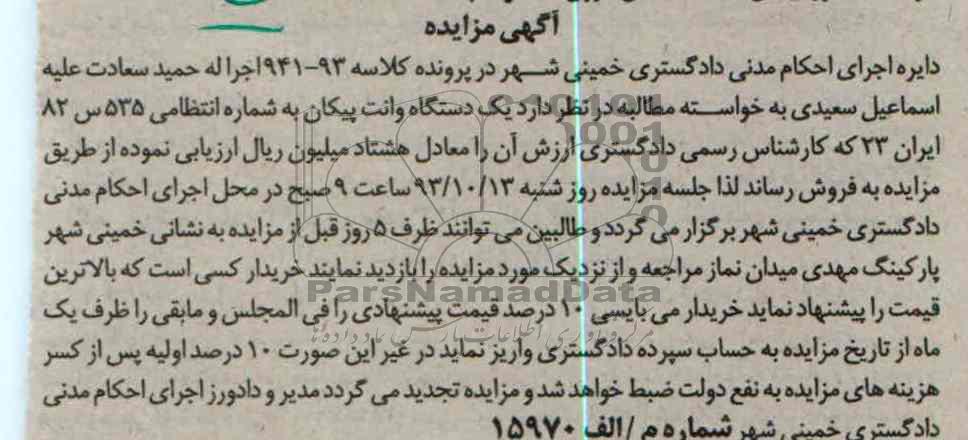 آگهی مزایده
دایره اجرای احکام مدنی دادگستری خمینی شهر در پرونده کلاسه ۹۳-۹۴۱اجرا له حمید سعادت علیه
اسماعیل سعیدی به خواسته مطالبه در نظر دارد یک دستگاه وانت پیکان به شماره انتظامی ۵۳۵ س ۸۲
ایران ۲۳ که کارشناس رسمی دادگستری ارزش آن را معادل هشتاد میلیون ریال ارزیابی نموده از طریق
مزایده به فروش رساند لذا جلسه مزایده روز شنبه ۹۳/۱۰/۱۳ ساعت ۹ صبح در محل اجرای احکام مدنی
دادگستری خمینی شهر برگزار می گردد و طالبین می توانند ظرف ۵ روز قبل از مزایده به نشانی خمینی شهر
پارکینگ مهدی میدان نماز مراجعه و از نزدیک مورد مزایده را بازدید نمایند خریدار کسی است که بالاترین
ParsNamadData
قیمت را پیشنهاد نماید خریدار می بایسی ۱۰ درصد قیمت پیشنهادی را فی المجلس و مابقی را ظرف یک
ماه از تاریخ مزایده به حساب سپرده دادگستری واریز نماید در غیر این صورت ۱۰ درصد اولیه پس از کسر
هزینه های مزایده به نفع دولت ضبط خواهد شد و مزایده تجدید می گردد مدیر و دادورز اجرای احکام مدنی
دادگستری خمینی شهر شماره م /الف ۱۵۹۷۰